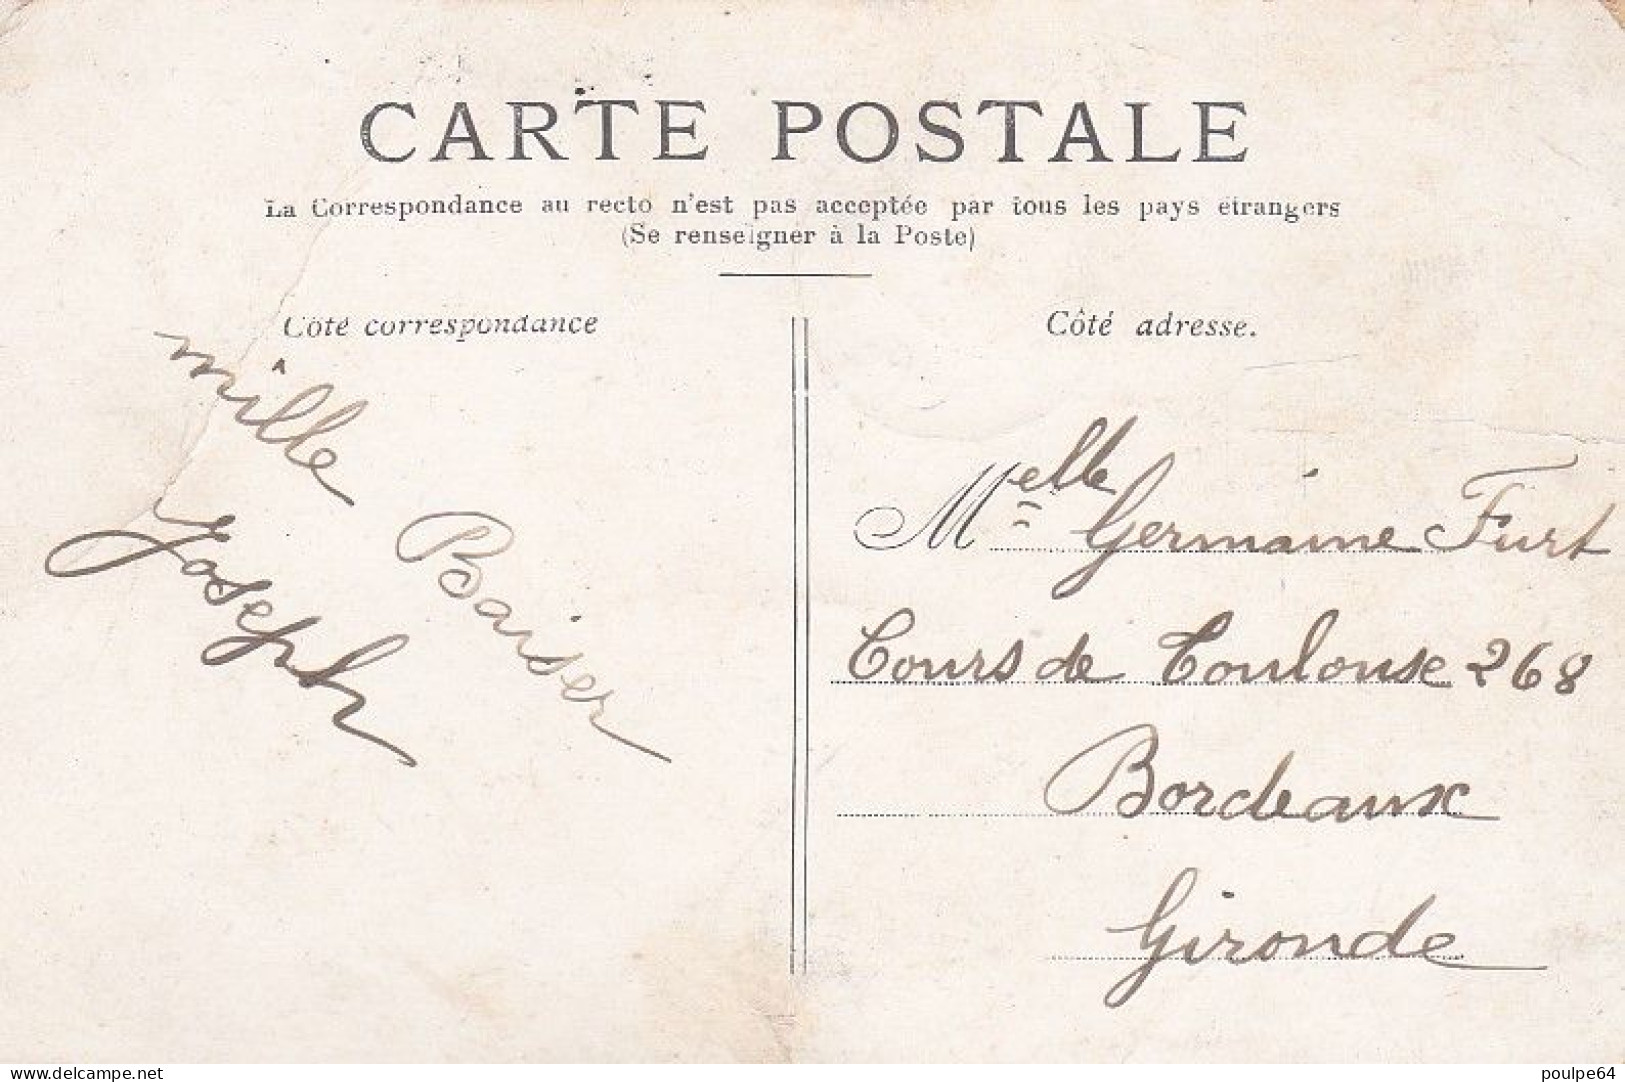 CARTE POSTALE
La Correspondance au recto n'est pas acceptée par tous les pays étrangers
(Se renseigner à la Poste)
Côté correspondance
mille
Baiser
Joseph
Côté adresse.
Melle Germaine Furt
Cours de Toulouse 268
Bordeaux
Gironde
delcampe.net
poulpe64